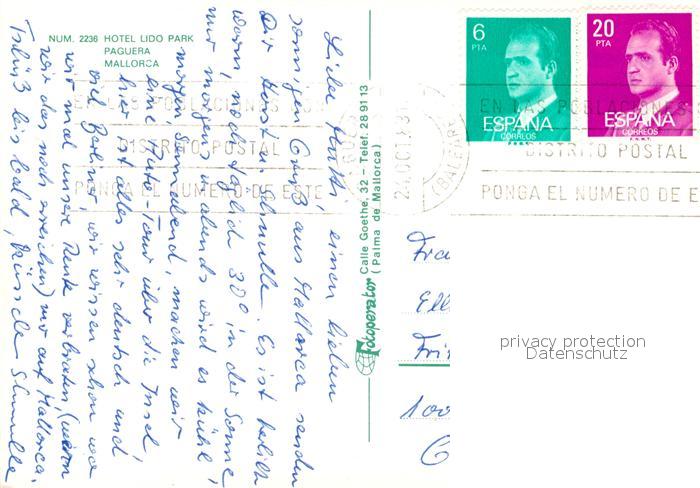 NUM. 2236 HOTEL LIDO PARK
PAGUERA
MALLORCA
einen lieben
sonnigen Gruß aus Mallorca senden
Dir Horst u. Es ist herrlich
warm, noch täglich 30° in der Sonne
nur morgens u. abends wird es kühl
morgen, Sonnabend, machen wir
eine Tour über die Insel,
hier ist alles sehr deutsch und
viel Berliner, wir wissen schon wo
wir mal unsere Rente verbraten, (wenn
wir das noch erreichen) nur auf Mallorca.
Tschüß bis bald, Küsschen
Fotoperator Calle Goethe, 32 - Telef. 28 91 13
(Palma de Mallorca)
6
PTA
ESPAÑA
CORREOS
20
PTA
ESPAÑA
CORREOS
EN LAS POBLACIONES CON
DISTRITO POSTAL
PONGA EL NUMERO DE ESTE
24 OCT
(BALEARES)
EN LAS POBLACIONES
DISTRITO POSTAL
PONGA EL NUMERO DE E
Fra
Ell
Fri
100
privacy protection
Datenschutz